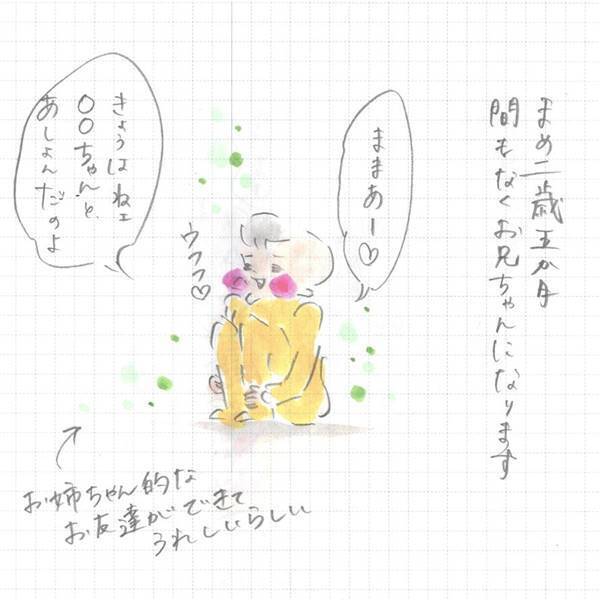 まめ二歳五か月
間もなくお兄ちゃんになります
ままあー♡
ウフフ♡
きょうはねェ
〇〇ちゃんと、
あしょんだのよ
お姉ちゃん的な
お友達ができて
うれしいらしい